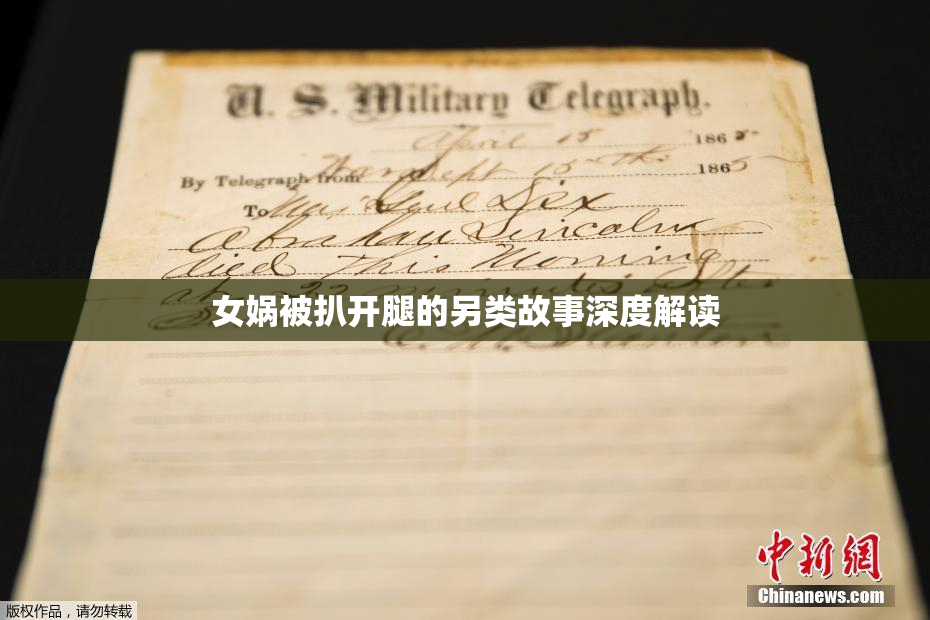 U. S. Military Telegraph.
April 15 1865
By Telegraph from War Dept 15th 1865
To Maj Genl Dix
Abraham Lincoln
died This Morning
at 22 minutes after
女娲被扒开腿的另类故事深度解读
E. M. Stanton
中新網
Chinanews.com
版权作品，请勿转载